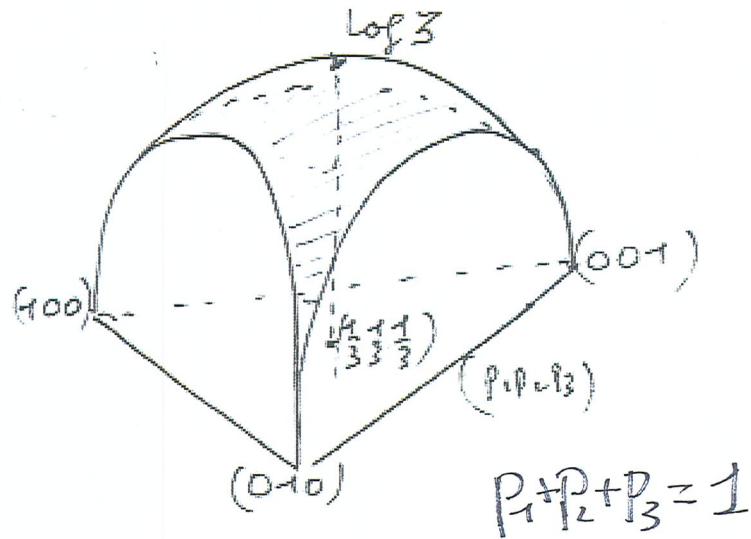 Log 3
(100)
(001)
(1/3 1/3 1/3)
(P₁P₂P₃)
(010)
P₁+P₂+P₃=1